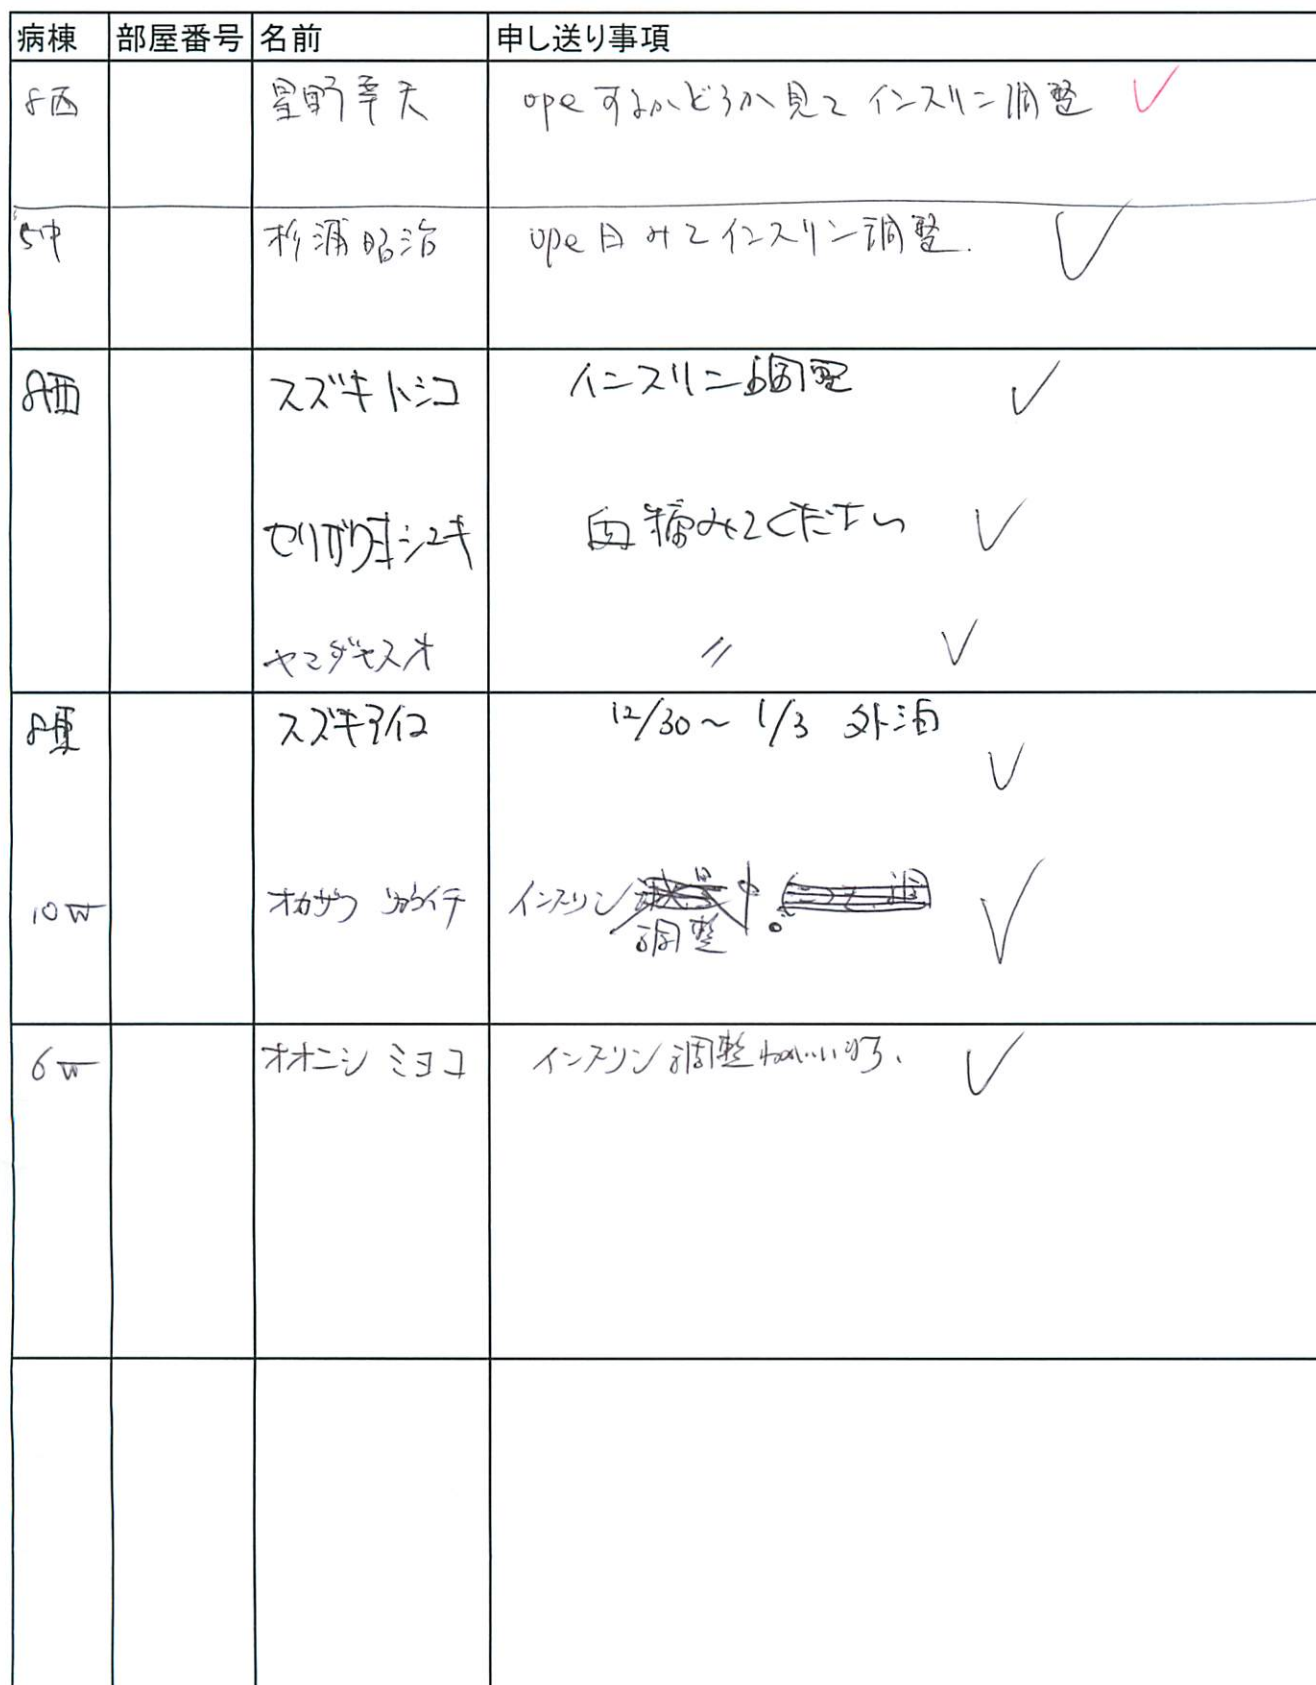 病棟 部屋番号 名前 申し送り事項
8西 星野幸夫 opeするかどうか見て インスリン調整 ✓
5中 杉浦昭治 ope日みてインスリン調整. ✓
8西 スズキトシコ インスリン調整 ✓
セリザワヨシユキ 血糖みてください ✓
ヤマダヤスオ 〃 ✓
8東 スズキアイコ 12/30～1/3 外泊 ✓
10W オカザワ インスリン 中。 ✓
調整
6W オオニシ ミヨコ インスリン調整 ✓